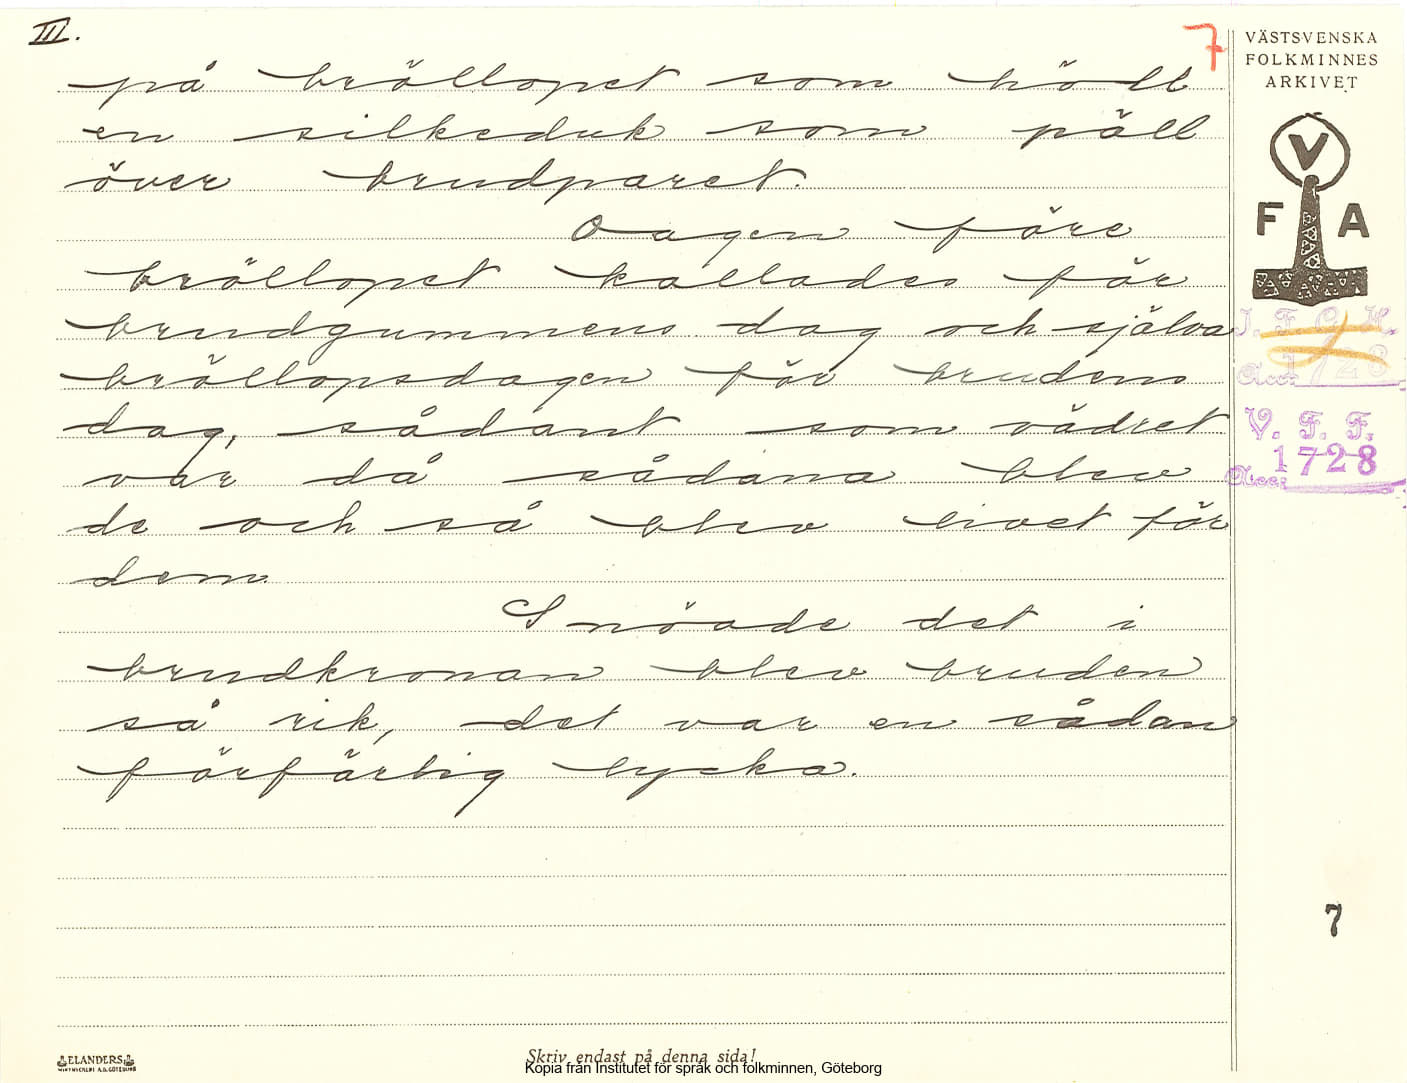 III.
7
på bröllopet som höll
en silkeduk som päll
över brudparet.
Dagen före
bröllopet kallades för
brudgummens dag och själva
bröllopsdagen för brudens
dag, sådant som vädret
var då sådana blev
de och så blev livet för
dem.
Snöade det i
brudkronan blev bruden
så rik, det var en sådan
förfärlig lycka.
VÄSTSVENSKA
FOLKMINNES
ARKIVET
V
F A
V. F. F.
Acc: 1728
7
ELANDERS
Skriv endast på denna sida!
Kopia från Institutet för språk och folkminnen, Göteborg